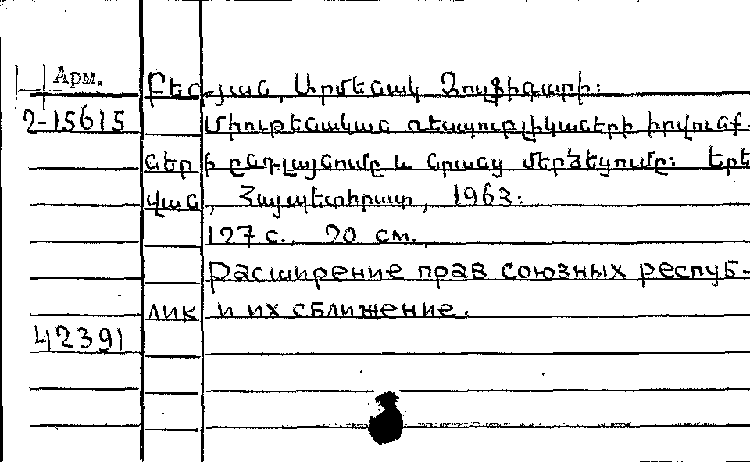 Арм.
2-15615
Արմենակ Զուլֆիգարի:
Միութենական ռեսպուբլիկաների իրավունք-
ների ընդլայնումը և նրանց մերձեցումը: Երե
վան, Հայպետհրատ, 1963:
127 с., 20 см.
Расширение прав союзных респуб-
лик и их сближение.
42391